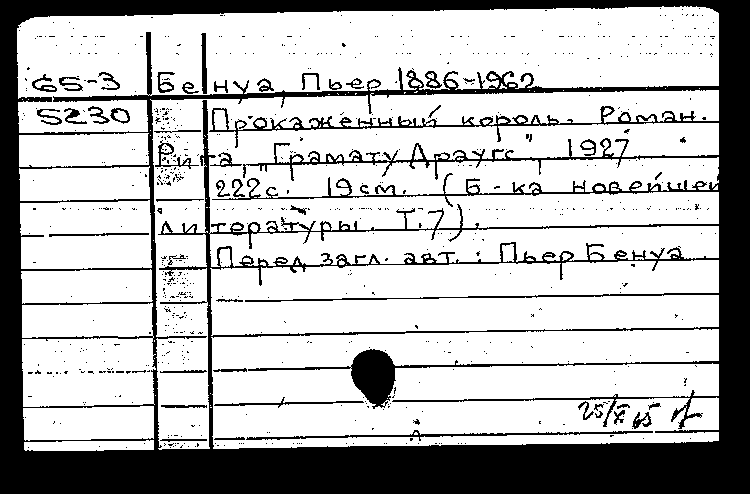 65-3 Бенуа, Пьер, 1886-1962
5230 Прокаженный король. Роман.
Рига, "Грамату Драугс", 1927
222с. 19см. (Б-ка новейшей
литературы. Т.7).
Перед загл. авт.: Пьер Бенуа
25/X 65